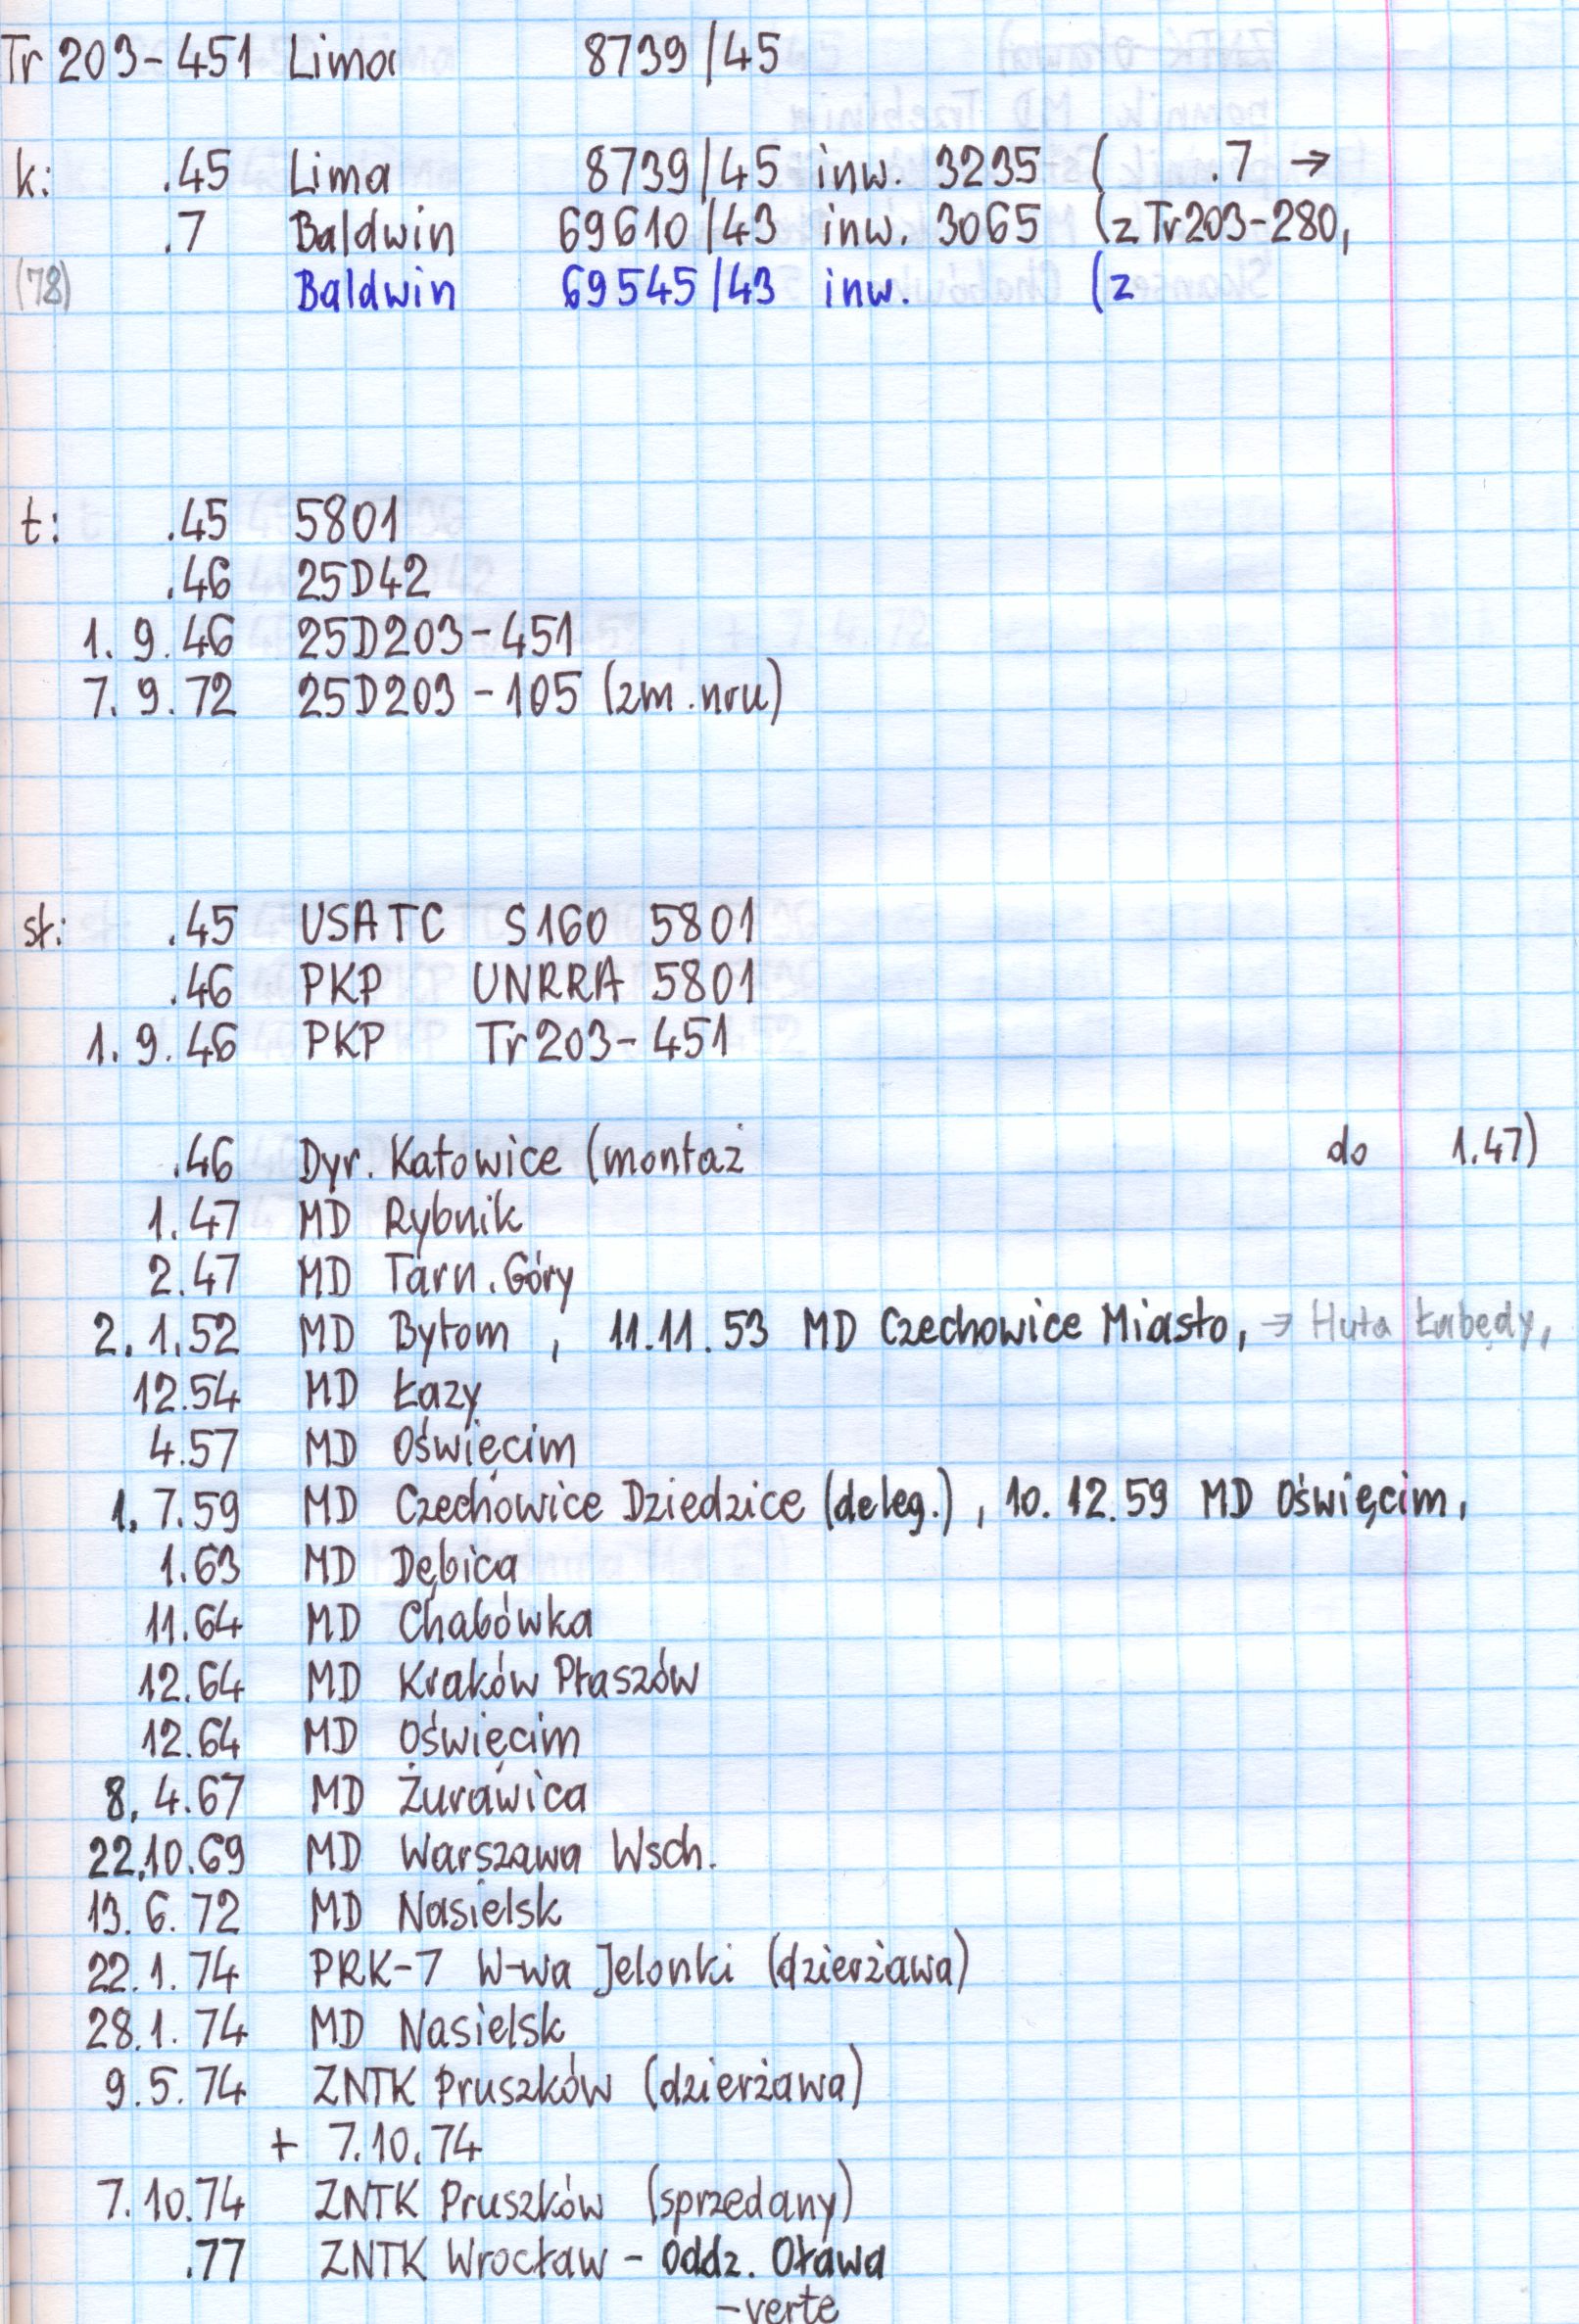 Tr 203-451 Lima 8739/45
k: .45 Lima 8739/45 inw. 3235 ( .7 →
.7 Baldwin 69610/43 inw. 3065 (z Tr203-280,
(78) Baldwin 69545/43 inw. (z
t: .45 5801
.46 25D42
1.9.46 25D203-451
7.9.72 25D203-105 (zm.nru)
sł: .45 USATC S160 5801
.46 PKP UNRRA 5801
1.9.46 PKP Tr203-451
.46 Dyr. Katowice (montaż do 1.47)
1.47 MD Rybnik
2.47 MD Tarn. Góry
2.1.52 MD Bytom, 11.11.53 MD Czechowice Miasto, → Huta Łabędy,
12.54 MD Łazy
4.57 MD Oświęcim
1.7.59 MD Czechowice Dziedzice (deleg.), 10.12.59 MD Oświęcim,
1.63 MD Dębica
11.64 MD Chabówka
12.64 MD Kraków Płaszów
12.64 MD Oświęcim
8.4.67 MD Żurawica
22.10.69 MD Warszawa Wsch.
13.6.72 MD Nasielsk
22.1.74 PRK-7 W-wa Jelonki (dzierżawa)
28.1.74 MD Nasielsk
9.5.74 ZNTK Pruszków (dzierżawa)
+ 7.10.74
7.10.74 ZNTK Pruszków (sprzedany)
.77 ZNTK Wrocław - Oddz. Oława
-verte